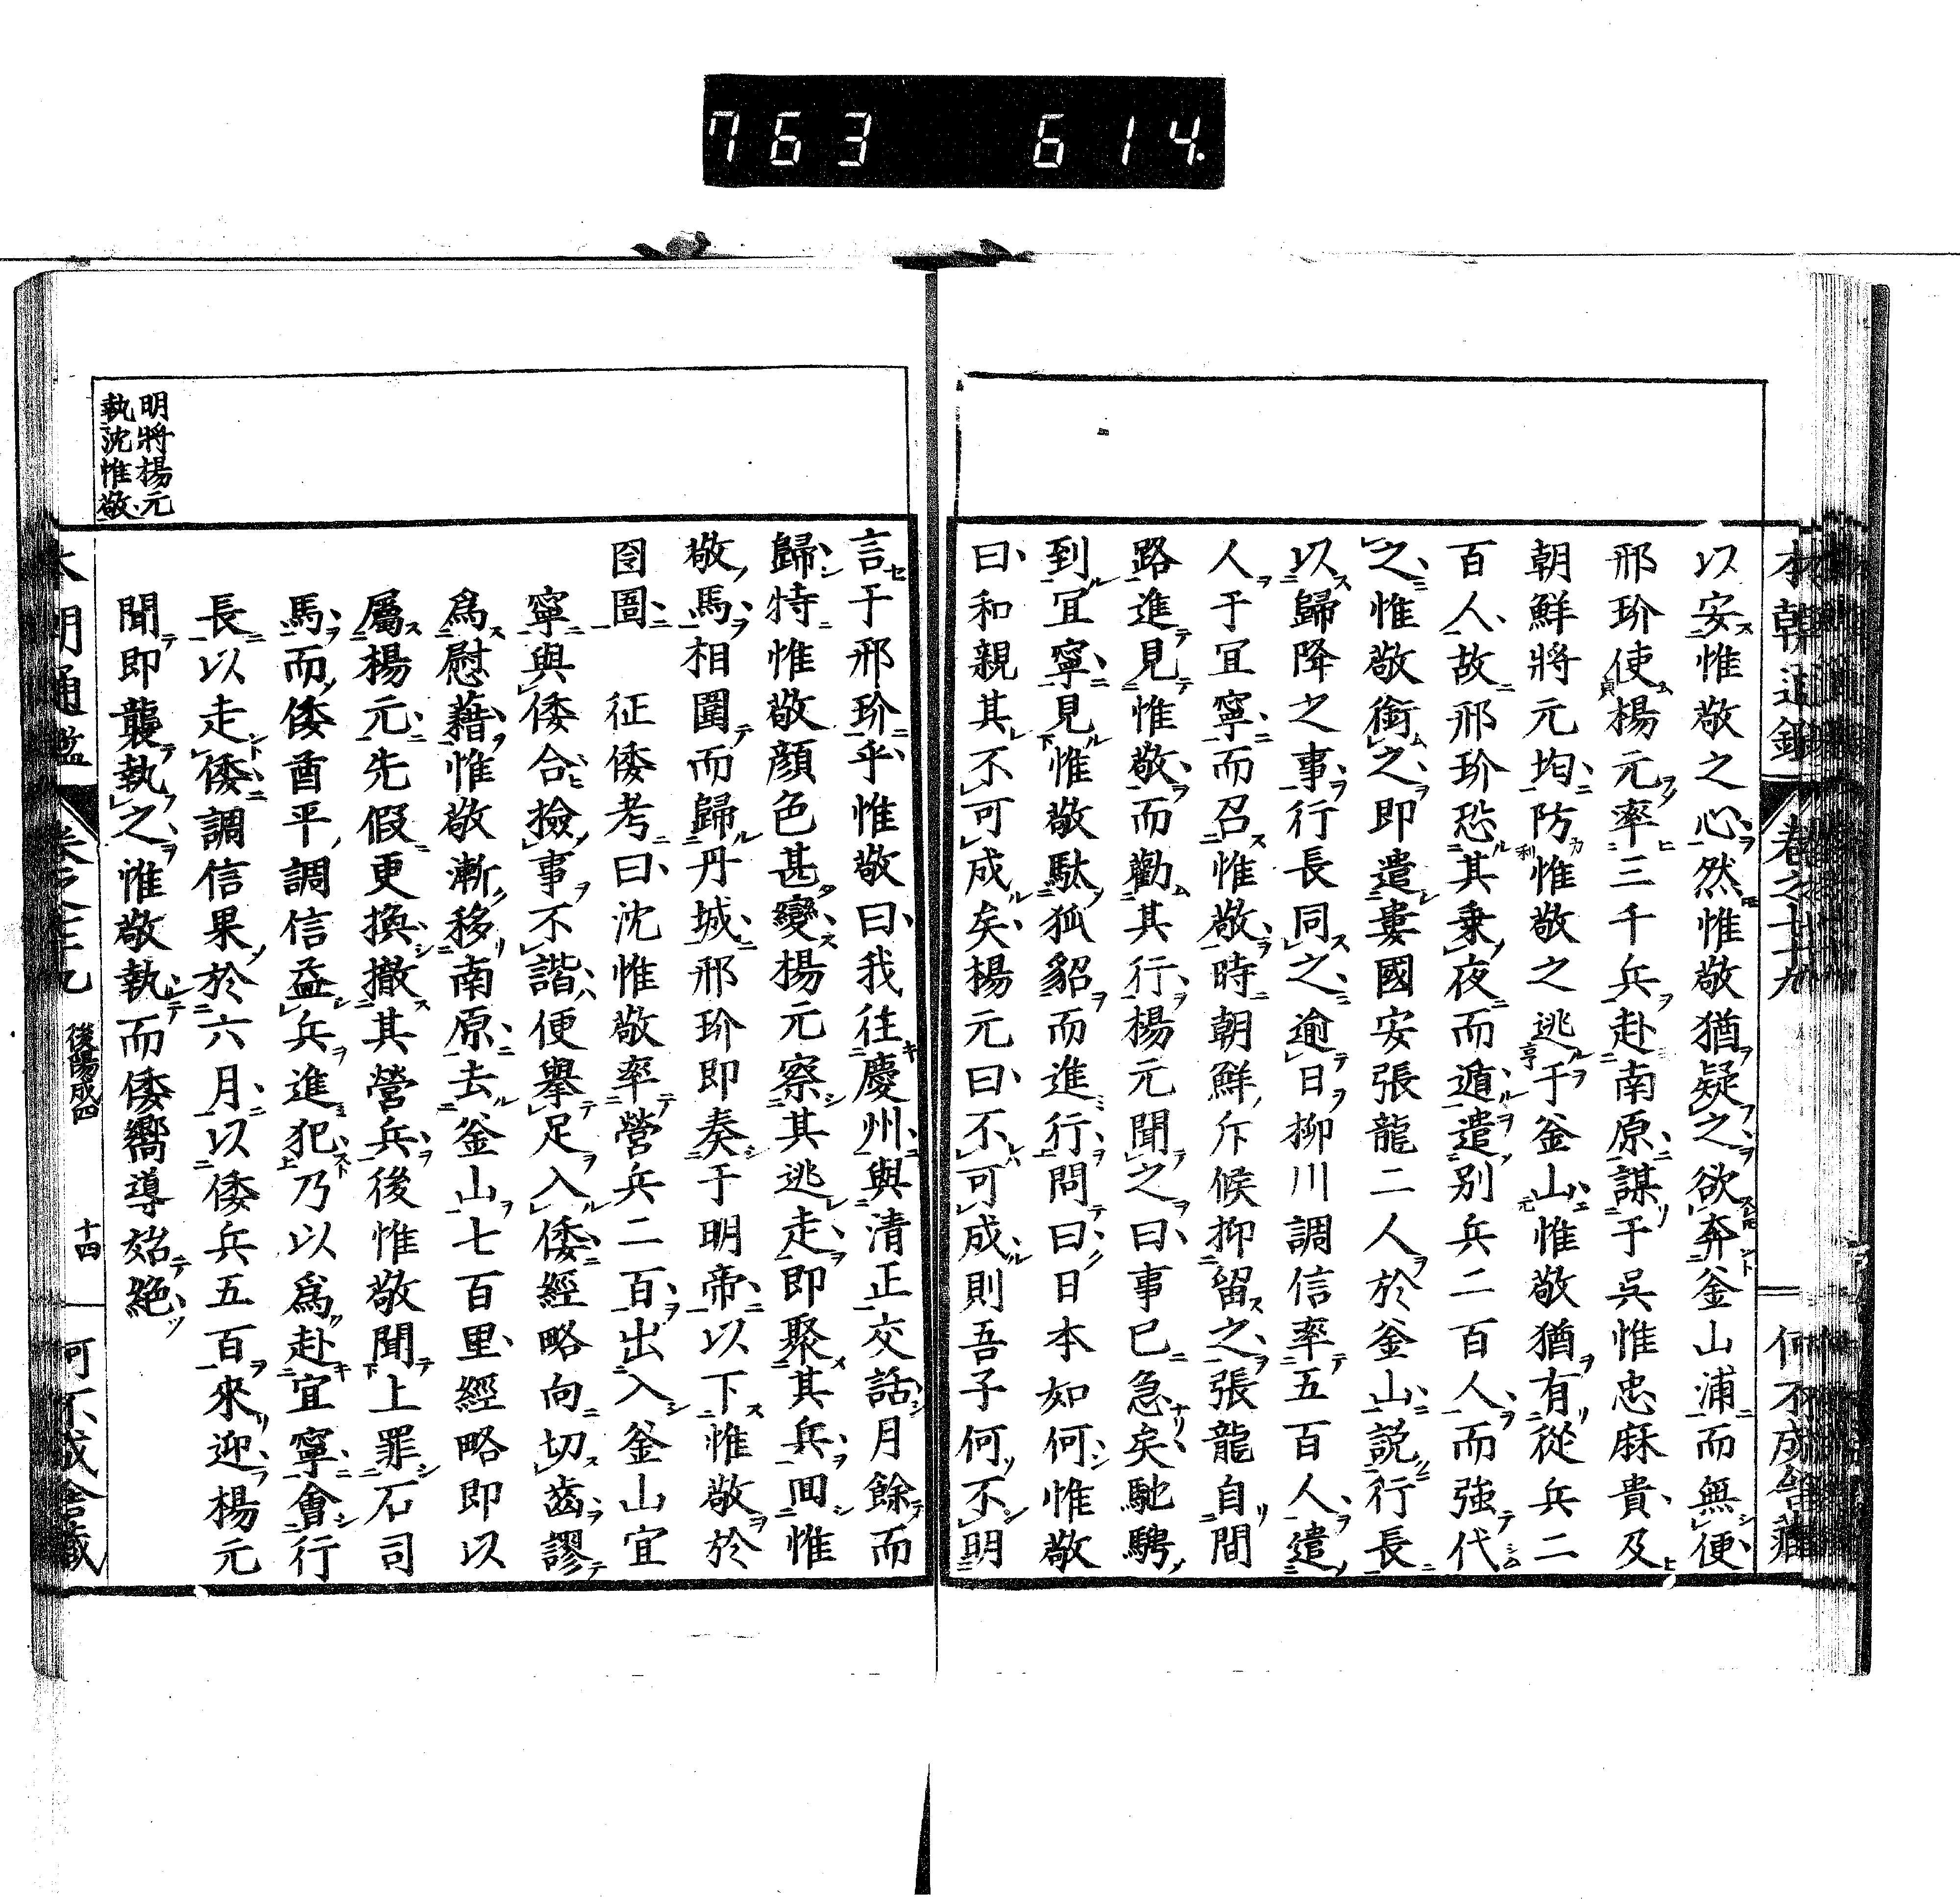 763 614.
以安惟敬之心然惟敬猶疑之欲奔釜山浦而無便
邢玠使楊元率三千兵赴南原謀于呉惟忠麻貴及
朝鮮將元均防惟敬之逃于釜山惟敬猶有從兵二
百人故邢玠恐其乗夜而遁遣別兵二百人而強代
之惟敬銜之即遣婁國安張龍二人於釜山説行長
以歸降之事行長同之逾日柳川調信率五百人遣
人于冝寧而召惟敬時朝鮮斥候抑留之張龍自間
路進見惟敬而勸其行楊元聞之曰事已急矣馳騁
到冝寧見惟敬駄狐貂而進行問曰日本如何惟敬
曰和親其不可成矣楊元曰不可成則吾子何不明
言于邢玠乎惟敬曰我往慶州與清正交話月餘而
歸特惟敬顔色甚變楊元察其逃走即聚其兵囬惟
敬馬相圍而歸丹城邢玠即奏于明帝以下惟敬於
囹圄 征倭考曰沈惟敬率營兵二百出入釜山宜
寧與倭合撿事不諧便擧足入倭經略向切齒謬
爲慰藉惟敬漸移南原去釜山七百里經略即以
屬楊元先假更換撤其營兵後惟敬聞上罪石司
馬而倭酋平調信益兵進犯乃以爲赴宜寧會行
長以走倭調信果於六月以倭兵五百來迎楊元
聞即襲執之惟敬執而倭嚮導始絶
明將楊元
執沈惟敬
後陽成四
十四